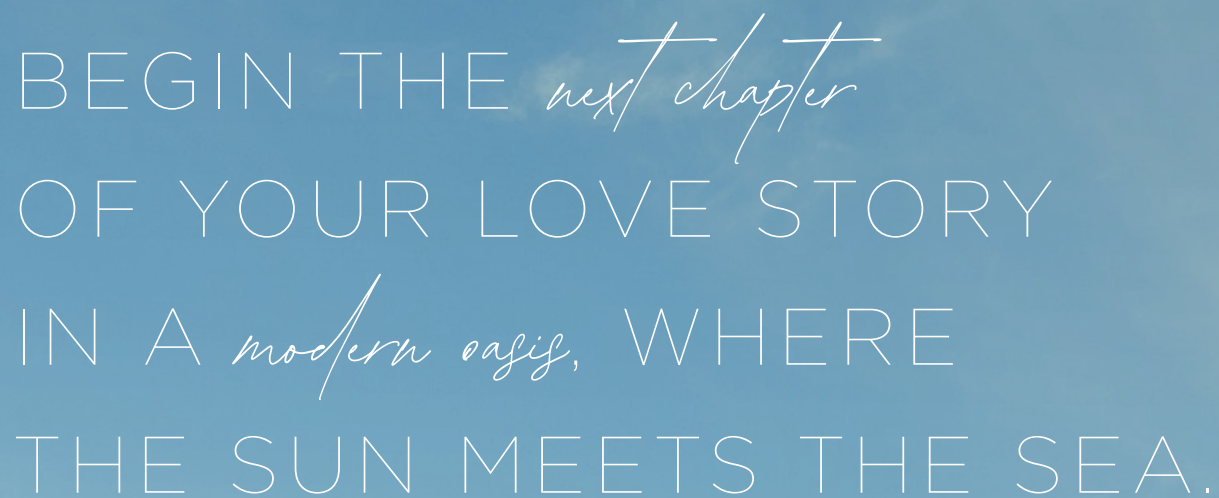 BEGIN THE next chapter
OF YOUR LOVE STORY
IN A modern oasis, WHERE
THE SUN MEETS THE SEA.